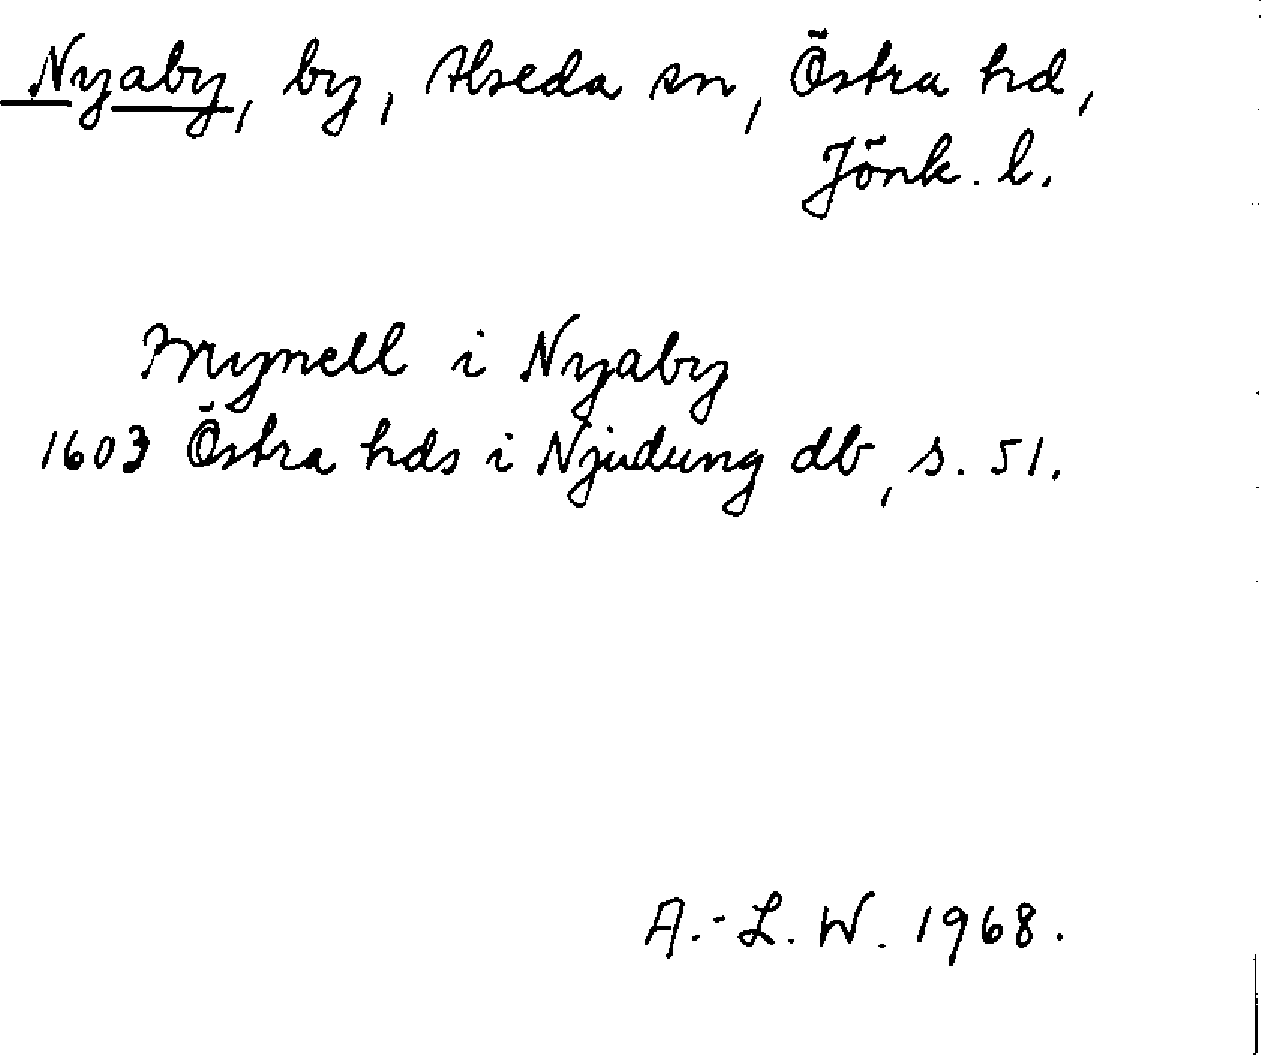 Nyaby, by, Alseda sn, Östra hd,
Jönk. l.
i Nyaby
1603 Östra hds i Njudung db, s. 51.
A.-L. W. 1968.